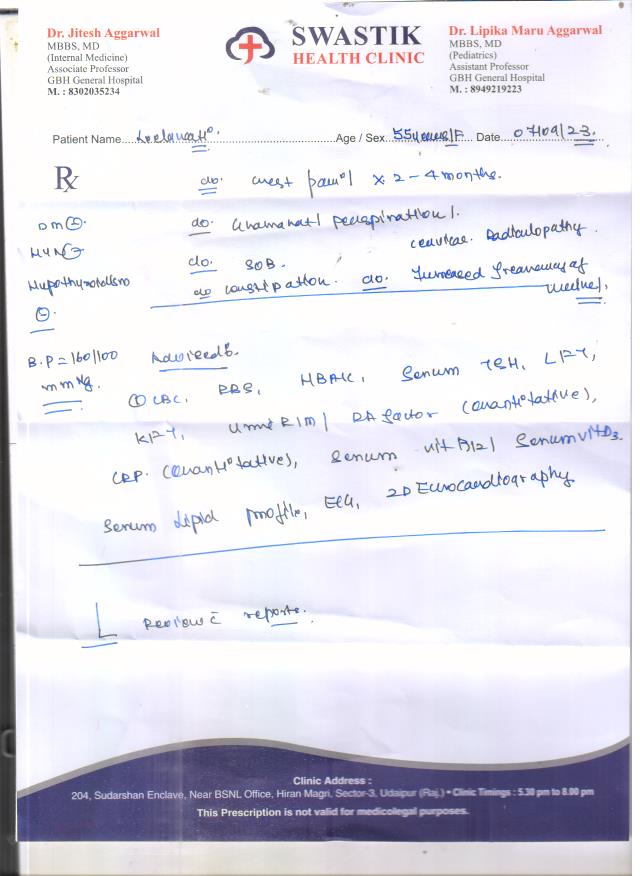 Dr. Jitesh Aggarwal
MBBS, MD
(Internal Medicine)
Associate Professor
GBH General Hospital
M. : 8302035234
SWASTIK
HEALTH CLINIC
Dr. Lipika Maru Aggarwal
MBBS, MD
(Pediatrics)
Assistant Professor
GBH General Hospital
M. : 8949219223
Patient Name Age / Sex 55 years/F Date 07/09/23
Rx
c/o. chest pain / x 2-4 months.
c/o. perspiration /.
cervical Radiculopathy.
c/o. SOB.
c/o constipation. c/o. Increased Frequency of
DM
HTN
Hypothyroidism
B.P = 160/100
mmHg
Advised
① CBC, RBS, HBA1C, Serum TSH, LFT,
KFT, Urine R/M / RA factor (Quantitative),
CRP (Quantitative), Serum vit B12 / Serum vit D3.
Serum Lipid profile, ECG, 2D
Review c̄ reports.
Clinic Address :
204, Sudarshan Enclave, Near BSNL Office, Hiran Magri, Sector-3, Udaipur (Raj.) • Clinic Timings : 5.30 pm to 8.00 pm
This Prescription is not valid for medicolegal purposes.